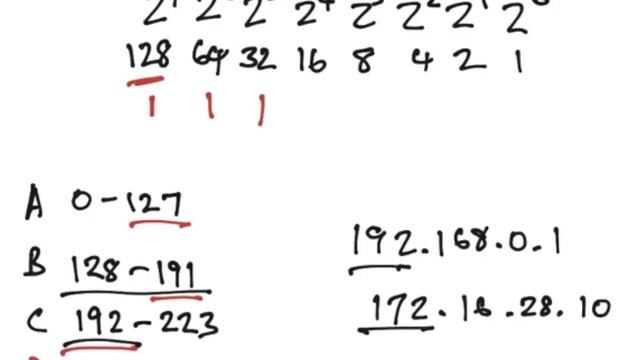 2 2 2 2⁴ 2 2² 2 2
128 64 32 16 8 4 2 1
1 1 1
A 0-127
B 128-191
C 192-223
192.168.0.1
172.16.28.10